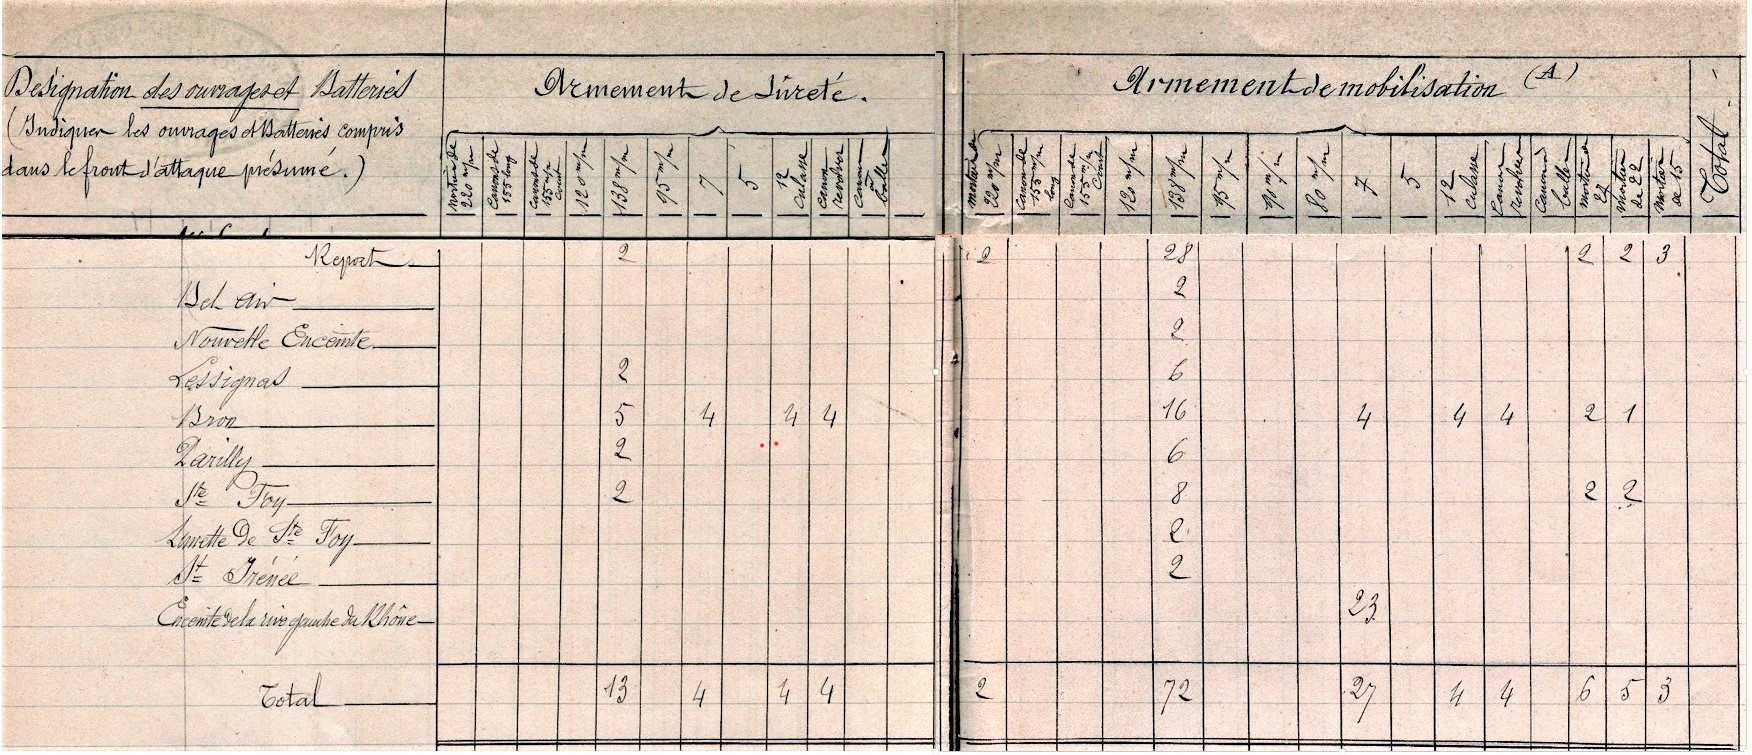 Désignation des ouvrages et Batteries
(Indiquer les ouvrages et Batteries compris
dans le front d'attaque présumé.)
Armement de Sûreté.
Mortier de 220 m/m
Canons de 155 long
Canons de 155 m/m Court
120 m/m
138 m/m
95 m/m
7
5
12 Culasse
Canon revolver
Canon à balles
Armement de mobilisation (A)
mortier de 220 m/m
Canons de 155 m/m long
Canons de 155 m/m Court
120 m/m
138 m/m
95 m/m
90 m/m
80 m/m
7
5
12 Culasse
Canon revolver
Canon à balles
mortier de 27
Mortier de 22
Mortier de 15
Total
Report 2 2 28 2 2 3
Bel air 2
Nouvelle Enceinte 2
Lessignas 2 6
Bron 5 4 4 4 16 4 4 4 2 1
Parilly 2 6
Ste Foy 2 8 2 2
Lunette de Ste Foy 2
St Irénée 2
Enceinte de la rive gauche du Rhône 23
Total 13 4 4 4 2 72 27 4 4 6 5 3